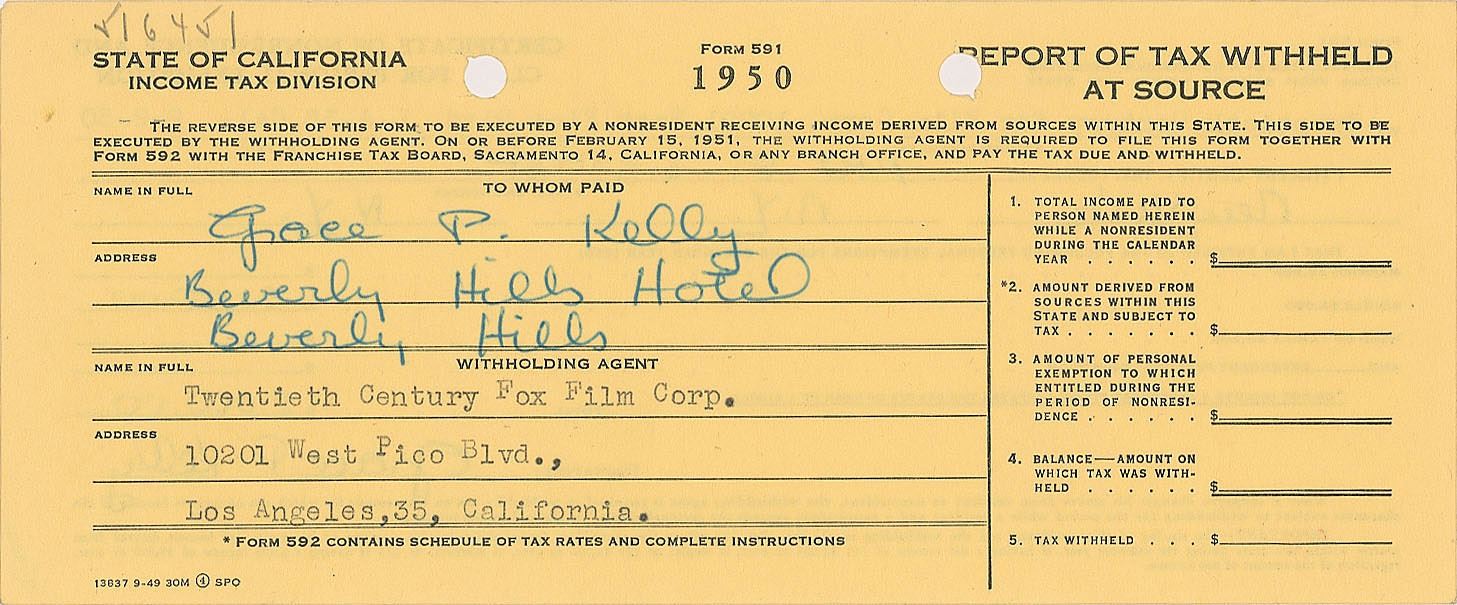 516451
STATE OF CALIFORNIA
INCOME TAX DIVISION
FORM 591
1950
REPORT OF TAX WITHHELD
AT SOURCE
THE REVERSE SIDE OF THIS FORM TO BE EXECUTED BY A NONRESIDENT RECEIVING INCOME DERIVED FROM SOURCES WITHIN THIS STATE. THIS SIDE TO BE
EXECUTED BY THE WITHHOLDING AGENT. ON OR BEFORE FEBRUARY 15, 1951, THE WITHHOLDING AGENT IS REQUIRED TO FILE THIS FORM TOGETHER WITH
FORM 592 WITH THE FRANCHISE TAX BOARD, SACRAMENTO 14, CALIFORNIA, OR ANY BRANCH OFFICE, AND PAY THE TAX DUE AND WITHHELD.
NAME IN FULL TO WHOM PAID
Grace P. Kelly
ADDRESS
Beverly Hills Hotel
Beverly Hills
NAME IN FULL WITHHOLDING AGENT
Twentieth Century Fox Film Corp.
ADDRESS
10201 West Pico Blvd.,
Los Angeles,35, California.
* FORM 592 CONTAINS SCHEDULE OF TAX RATES AND COMPLETE INSTRUCTIONS
13637 9-49 30M 4 SPO
1. TOTAL INCOME PAID TO
PERSON NAMED HEREIN
WHILE A NONRESIDENT
DURING THE CALENDAR
YEAR . . . . . . $
*2. AMOUNT DERIVED FROM
SOURCES WITHIN THIS
STATE AND SUBJECT TO
TAX . . . . . . . $
3. AMOUNT OF PERSONAL
EXEMPTION TO WHICH
ENTITLED DURING THE
PERIOD OF NONRESI-
DENCE . . . . . . $
4. BALANCE—AMOUNT ON
WHICH TAX WAS WITH-
HELD . . . . . . $
5. TAX WITHHELD . . . $